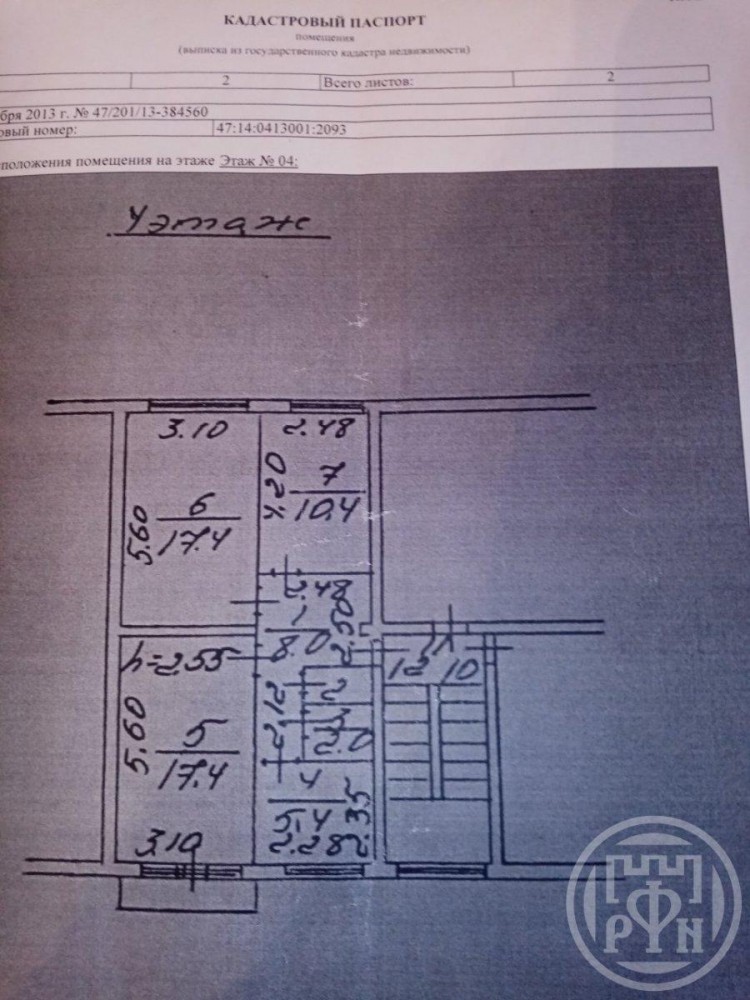 КАДАСТРОВЫЙ ПАСПОРТ
помещения
(выписка из государственного кадастра недвижимости)
2 Всего листов: 2
бря 2013 г. № 47/201/13-384560
овый номер: 47:14:0413001:2093
положения помещения на этаже Этаж № 04:
4 этаж
3.10 2.48
5.60 6 17.4
4.20 7 10.4
2.48
1 8.0 2.50
h=2.55
12 10
2.12 2
3 2.0
5.60 5 17.4
4 5.4 2.35
3.10 2.28
РФН